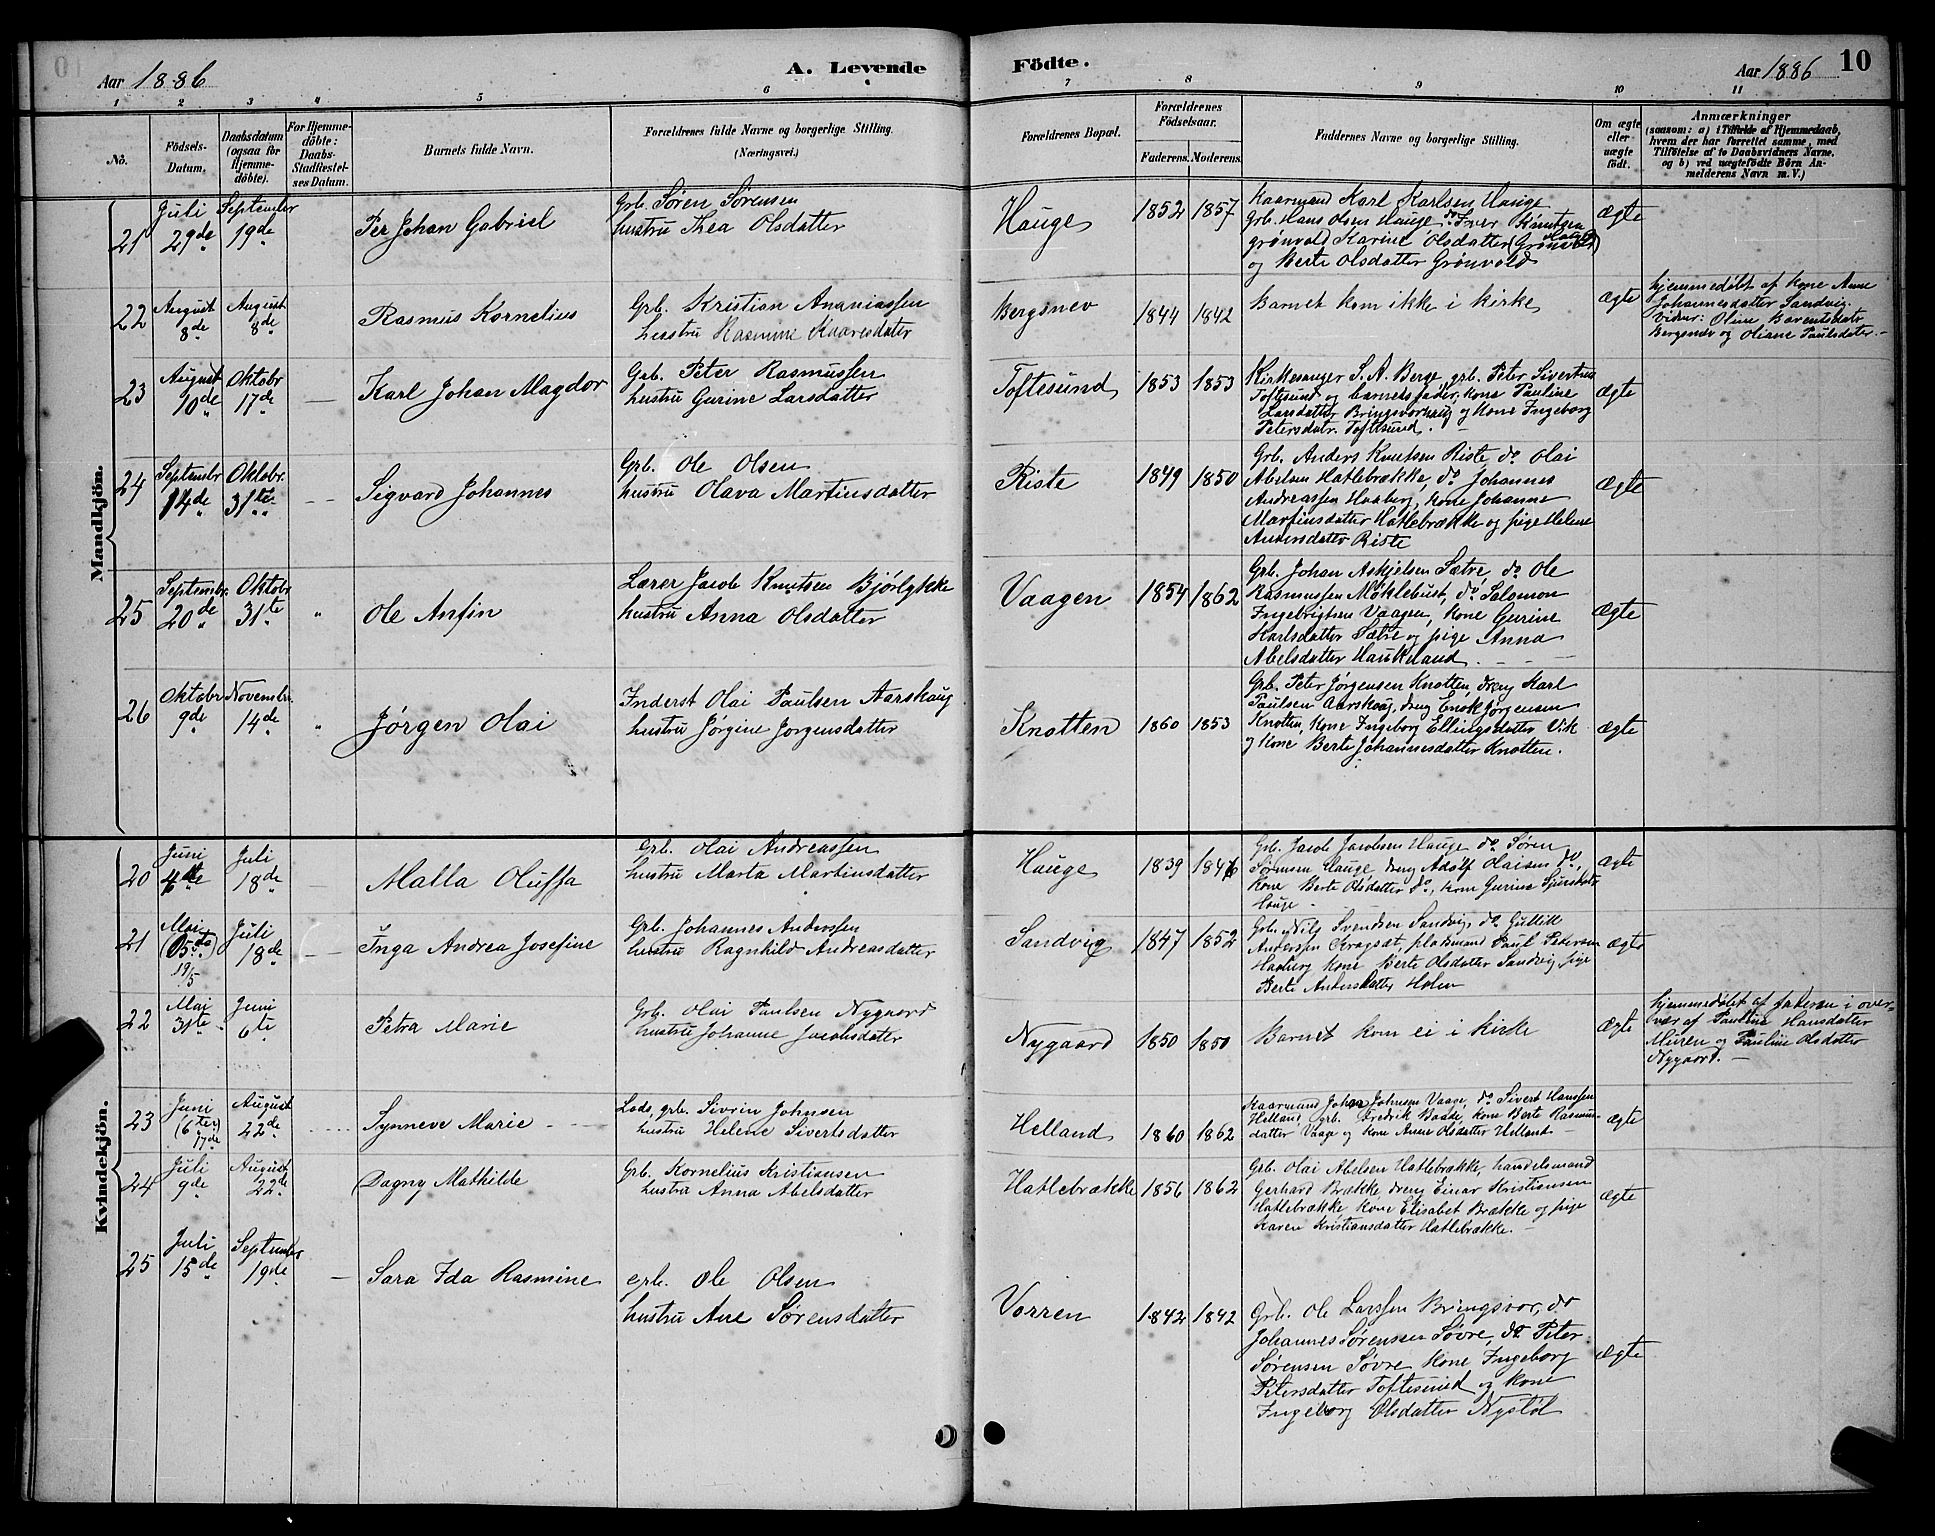 Aar 1886
A. Levende
Födte.
Aar 1886
10
1 2 3 4 5 6 7 8 9 10 11
No.
Födsels-Datum.
Daabsdatum (ogsaa for Hjemmedöbte).
For Hjemmedöbte: Daabs-Stadfestelses Datum.
Barnets fulde Navn.
Forældrenes fulde Navne og borgerlige Stilling. (Næringsvei.)
Forældrenes Bopæl.
Forældrenes Födselsaar.
Faderens. Moderens.
Faddernes Navne og borgerlige Stilling.
Om ægte eller uægte födt.
Anmærkninger
(saasom: a) i Tilfælde af Hjemmedaab,
hvem der har forrettet samme, med
Tilföielse af to Daabsvidners Navne,
og b) ved uægtefödte Börn Anmelderens Navn m. V.)
Mandkjön.
21
Juli 29de
September 19de
Per Johan Gabriel
Grb. Søren Sørensen
hustru Thea Olsdatter
Hauge
1852 1857
Kaarmand Karl Karlsen Hauge
Grb. Hans Olsen Hauge, do Iver Knutsen
grønvold Karine Olsdatter
og Berte Olsdatter Grønvold
ægte
22
August 8de
August 8de
Rasmus Kornelius
Grb. Kristian Ananiassen
hustru Rasmine Kaaresdatter
Bergsnev
1844 1842
Barnet kom ikke i kirke
ægte
hjemmedøbt af Kone Ane
Johannesdatter Sandvig.
Vidner: Oline Barentsdatr
Bergsnev og Oliane Paulsdatter.-
23
August 10de
Oktobr 17de
Karl Johan Magdor
Grb. Peter Rasmussen
hustru Gurine Larsdatter
Toftesund
1853 1853
Kirkesanger S. A. Berge, grb. Peter Sivertsen
Toftesund og barnets fader, Kone Pauline
Larsdatter Bringsvorhaug og Kone Ingeborg
Petersdatr. Toftesund. -
ægte
24
Septembr 14de
Oktobr. 31te
Sigvard Johannes
Grb. Ole Olsen
hustru Olava Martinsdatter
Riste
1849 1850
Grb. Anders Knutsen Riste, do Olai
Abelsen Hatlebrække, do Johannes
Andreassen Haaberg, Kone Johanne
Martinsdatter Hatlebrække og pige Helene
Andersdatter Riste
ægte
25
Septembr. 20de
Oktobr 31te
Ole Anfin
Lærer Jacob Knutsen Bjørlykke
hustru Anna Olsdatter
Vaagen
1854 1862
Grb. Johan Askjelsen Sætre, do Ole
Rasmussen Møklebust, do Salomon
Ingebrigtsen Vaagen, Kone Gurine
Karlsdatter Sætre og pige Anna
Abelsdatter Haukeland. - - -
ægte
26
Oktobr 9de
Novembr. 14de
Jørgen Olai
Inderst Olai Paulsen Aarskaug
hustru Jørgine Jørgensdatter
Knotten
1860 1853
Grb. Peter Jørgensen Knotten, dreng Karl
Paulsen Aarskaug, dreng Enok Jørgensen
Knotten, Kone Ingeborg Ellingsdatter Vik
og Kone Berte Johannesdatter Knotten.
ægte
Kvindekjön.
20
Juni 4de
Juli 18de
Malla Oluffa
Grb. Olai Andreassen
hustru Marta Martinsdatter
Hauge
1839 1846
Grb. Jacob Jacobsen Hauge do Søren
Sørensen Hauge, dreng Adolf Olaisen do,
Kone Berte Olsdatter do, kone Gurine
Hauge -
ægte
21
Mai
19/5
Juli 18de
Inga Andrea Josefine
Grb. Johannes Anderssen
hustru Ragnhild Andreasdatter
Sandvig
1847 1852
Grb. Nils Svendsen Sandvig, do Gullik
Anderssen, pladsmand Paul Pedersen
Haaberg Kone Berte Olsdatter Sandvig, pige
Berte Andersdatter Holen
ægte
22
Mai 31te
Juni 6te
Petra Marie
Grb. Olai Paulsen Nygaard
hustru Johanne Jacobsdatter
Nygaard
1850 1850
Barnet kom ei i kirke
ægte
hjemmedøbt af faderen i overvær
af Pauline Hansdatter
Muren og Pauline Olsdatter
Nygaard. -
23
Juni (6te) 17de
August 22de
Synneve Marie
Lods, grb. Sivrin Johnsen
hustru Helene Sivertsdatter
Helland
1860 1862
Kaarmand Johan Johnsen Vaage, do Sivert Hanssen
Helland, grb. Fredrik Baade, kone Berte Rasmusdatter
Vaage og Kone Anne Olsdatter Helland -
ægte
24
Juli 9de
August 22de
Dagny Mathilde
Grb. Kornelius Kristiansen
hustru Anna Abelsdatter
Hatlebrække
1856 1862
Grb. Olai Abelsen Hatlebrække, handelsmand
Gerhard Brække, dreng Einar Kristiansen
Hatlebrække, Kone Elisabet Brække og pige
Karen Kristiansdatter Hatlebrække. -
ægte
25
Juli 15de
Septembr 19de
Sara Ida Rasmine
Grb. Ole Olsen
hustru Ane Sørensdatter
Vorren
1842 1842
Grb. Ole Larssen Bringsvor, do
Johannes Sørenssen Søvre, do Peter
Sørensen Søvre Kone Ingeborg
Petersdatter Toftesund og Kone
Ingeborg Olsdatter Nystøl
ægte